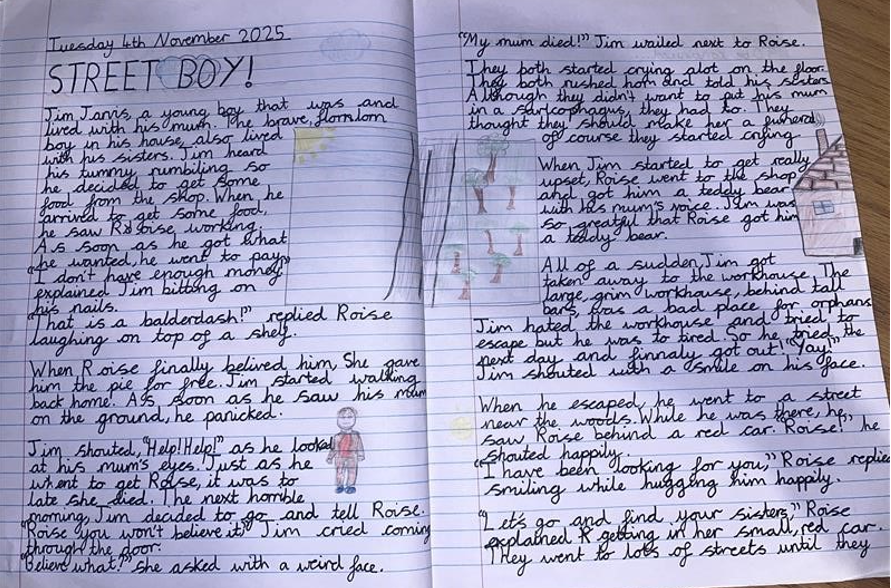 Tuesday 4th November 2025
STREET BOY!
Jim Jarvis, a young boy that was and
lived with his mum. The brave, flornlom
boy in his house, also lived
with his sisters. Jim heard
his tummy rumbiling so
he decided to get some
food from the shop. When he
arrived to get some food,
he saw Roise working.
As soon as he got what
he wanted, he went to pay,
"I don't have enough money"
explained Jim bitting on
his nails.
"That is a balderdash!" replied Roise
laughing on top of a shelf.
When Roise finally belived him, She gave
him the pie for free. Jim started walking
back home. As soon as he saw his mum
on the ground, he panicked.
Jim shouted, "Help! Help!" as he looked
at his mum's eyes. Just as he
whent to get Roise, it was to
late she died. The next horrible
morning, Jim decided to go and tell Roise.
"Roise you won't believe it," Jim cried coming
through the door.
"Believe what?" she asked with a weird face.
"My mum died!" Jim wailed next to Roise.
They both started crying alot on the floor.
They both rushed hom and told his sisters
Although they didn't want to put his mum
in a sarcophagus, they had to. They
thought they should make her a funeral,
of course they started crying
When Jim started to get really
upset, Roise went to the shop
and got him a teddy bear
with his mum's voice. Jim was
so greatful that Roise got him
a teddy bear.
All of a sudden, Jim got
taken away to the workhouse. The
large, grim workhouse, behind tall
bars, was a bad place for orphans
Jim hated the workhouse and tried to
escape but he was to tired. So he tried the
next day and finnaly got out! "Yay!"
Jim shouted with a smile on his face.
When he escaped, he went to a street
near the woods. While he was there, he
saw Roise behind a red car. "Roise!" he
shouted happily.
"I have been looking for you," Roise replied
smiling while hugging him happily.
"Let's go and find your sisters" Roise
explained getting in her small, red car.
They went to lots of streets until they